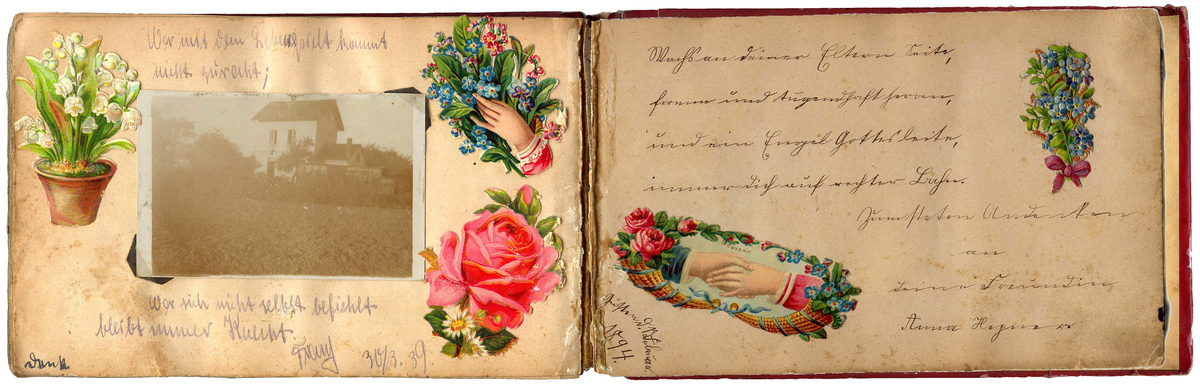 Wer mit dem Leben nicht kommt
nicht zurecht,
Wer sich nicht selbst befiehlt
bleibt immer Knecht.
30/3. 39
Wachs an deiner Eltern Seite,
fromm und tugendhaft heran,
und ein Engel Gottes leite,
immer dich auf rechter Bahn.
Zum steten Andenken
an
deine Freundin
Anna
1894.